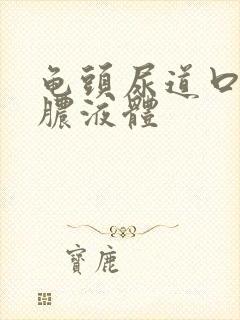 龟頭尿道口
膿液體
寶鹿